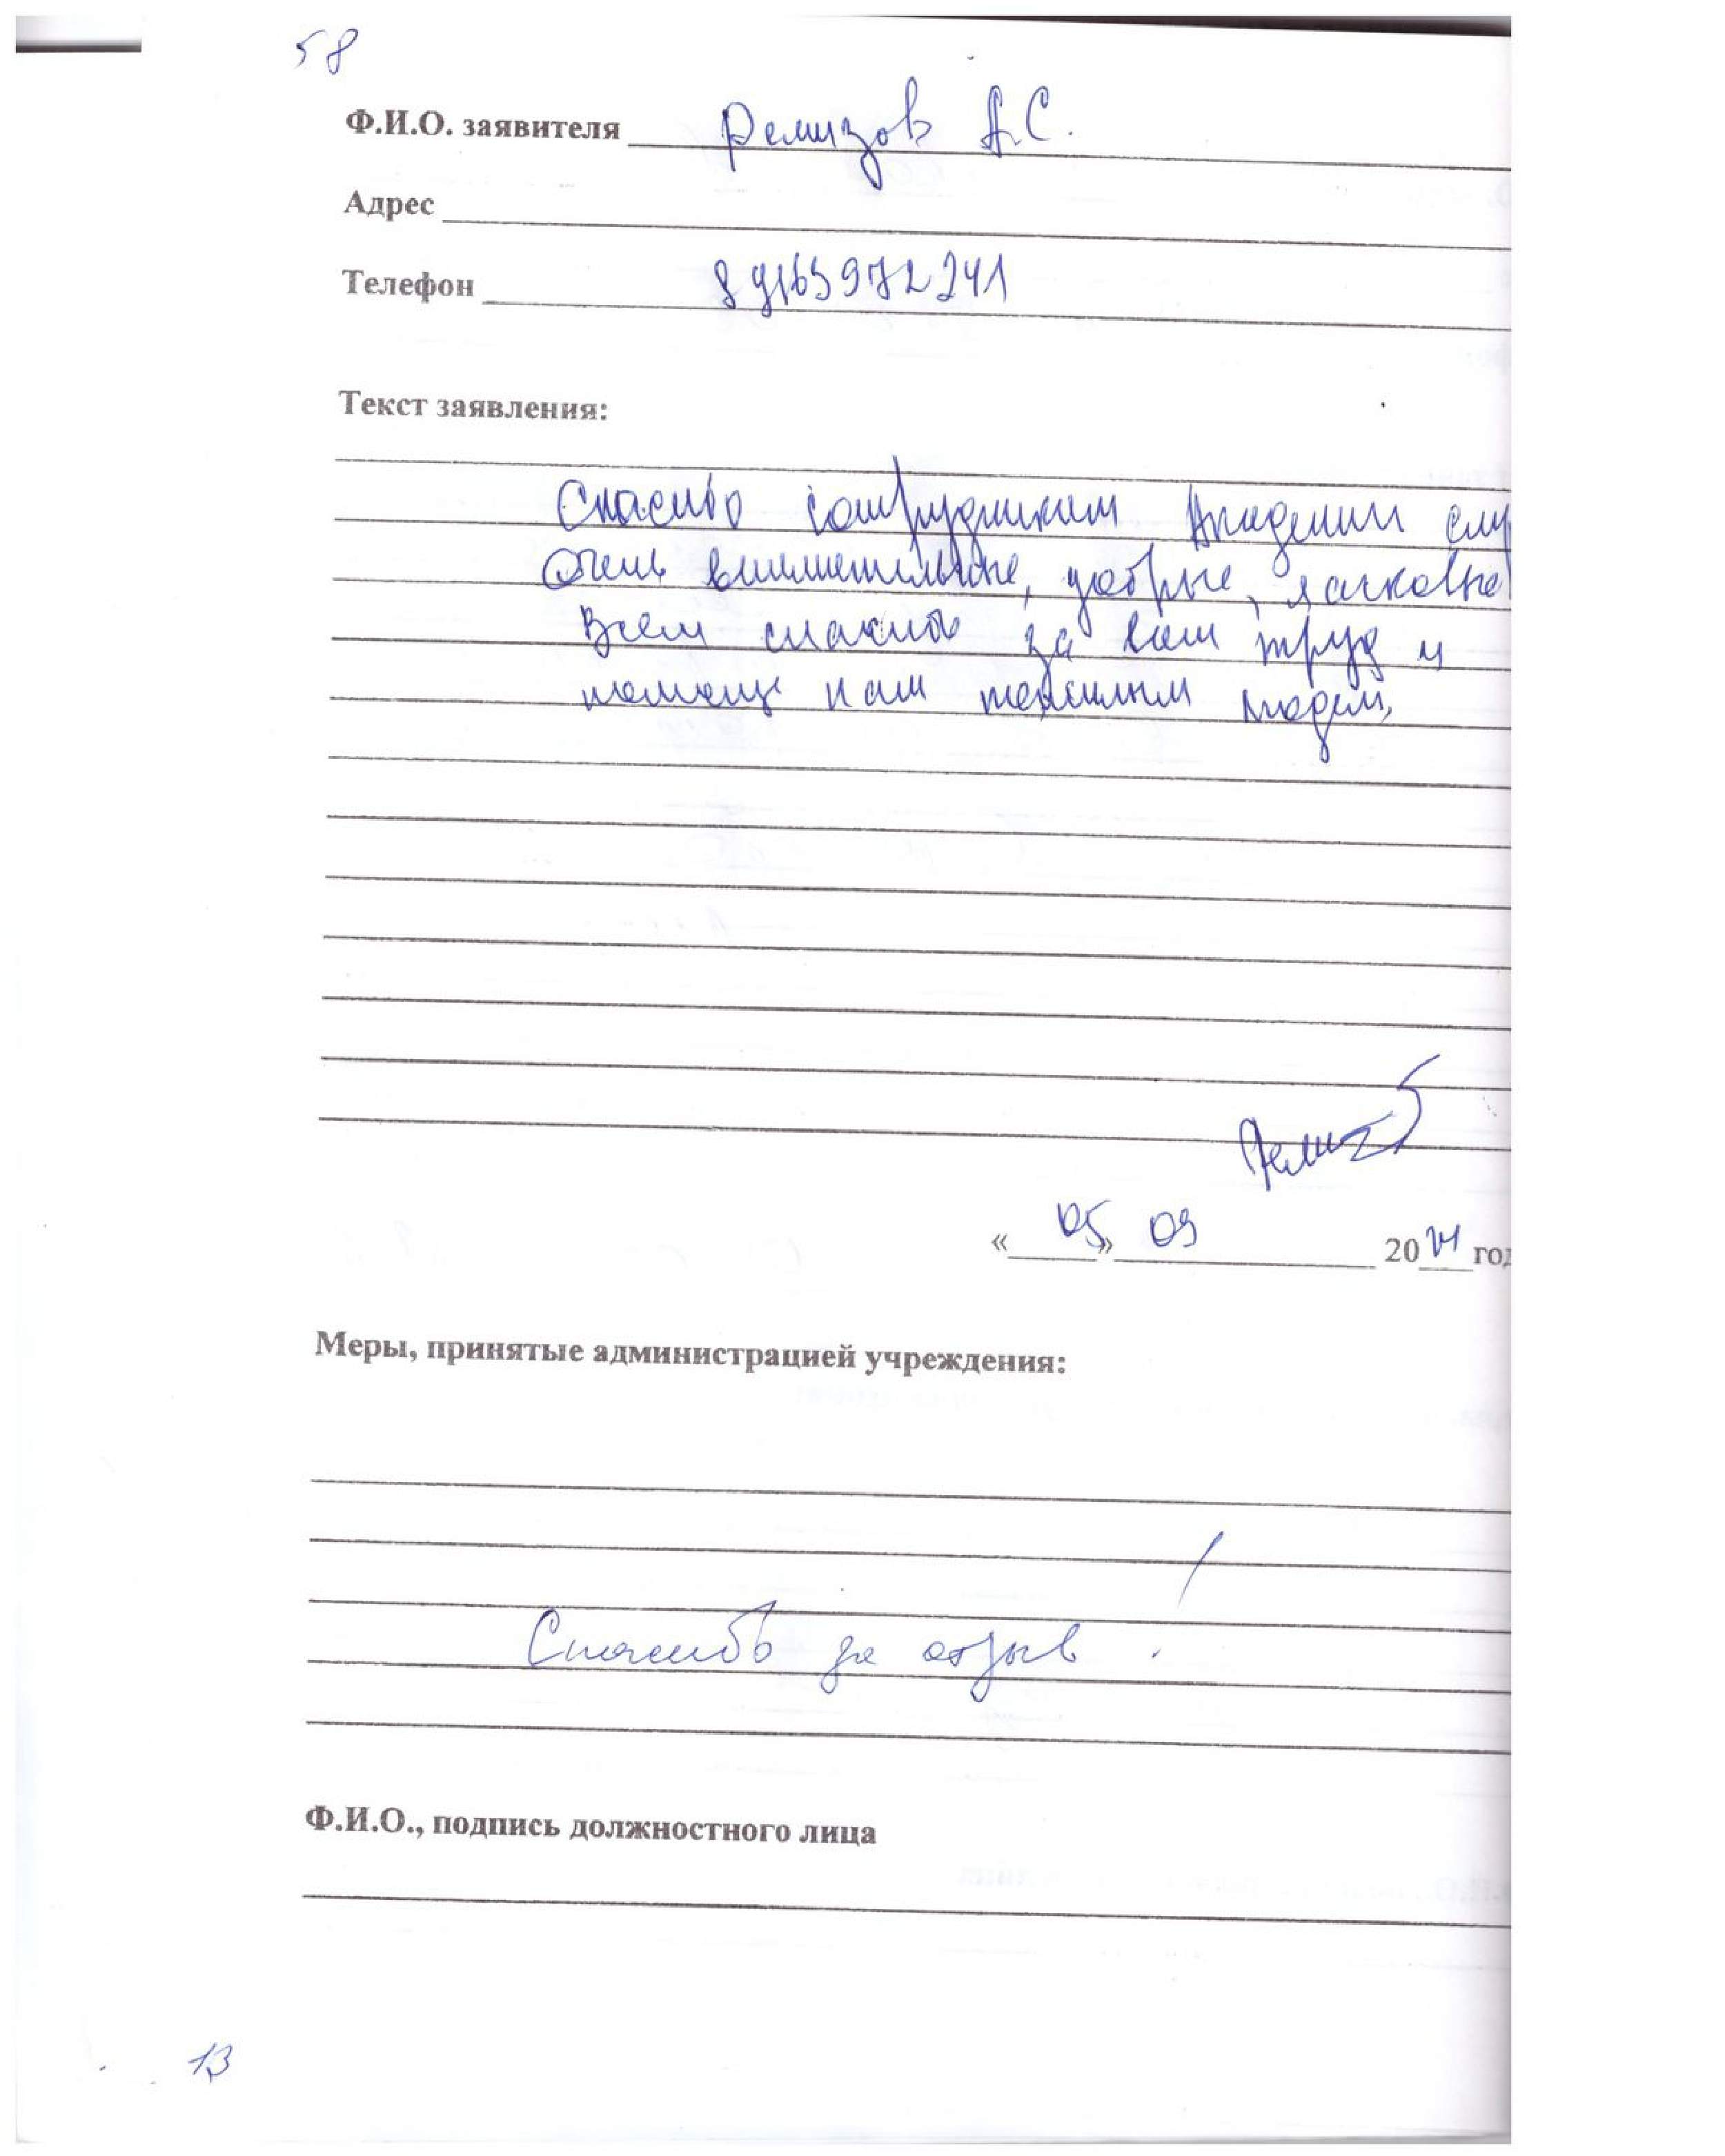 58
Ф.И.О. заявителя Ремизов А.С.
Адрес
Телефон 89165972241
Текст заявления:
Спасибо сотрудникам Академии
Очень внимательные, добрые, ласковые
Всем спасибо за ваш труд и
помощь нам пожилым людям,
«05» 09 2021 год
Меры, принятые администрацией учреждения:
Спасибо за отзыв!
Ф.И.О., подпись должностного лица
13